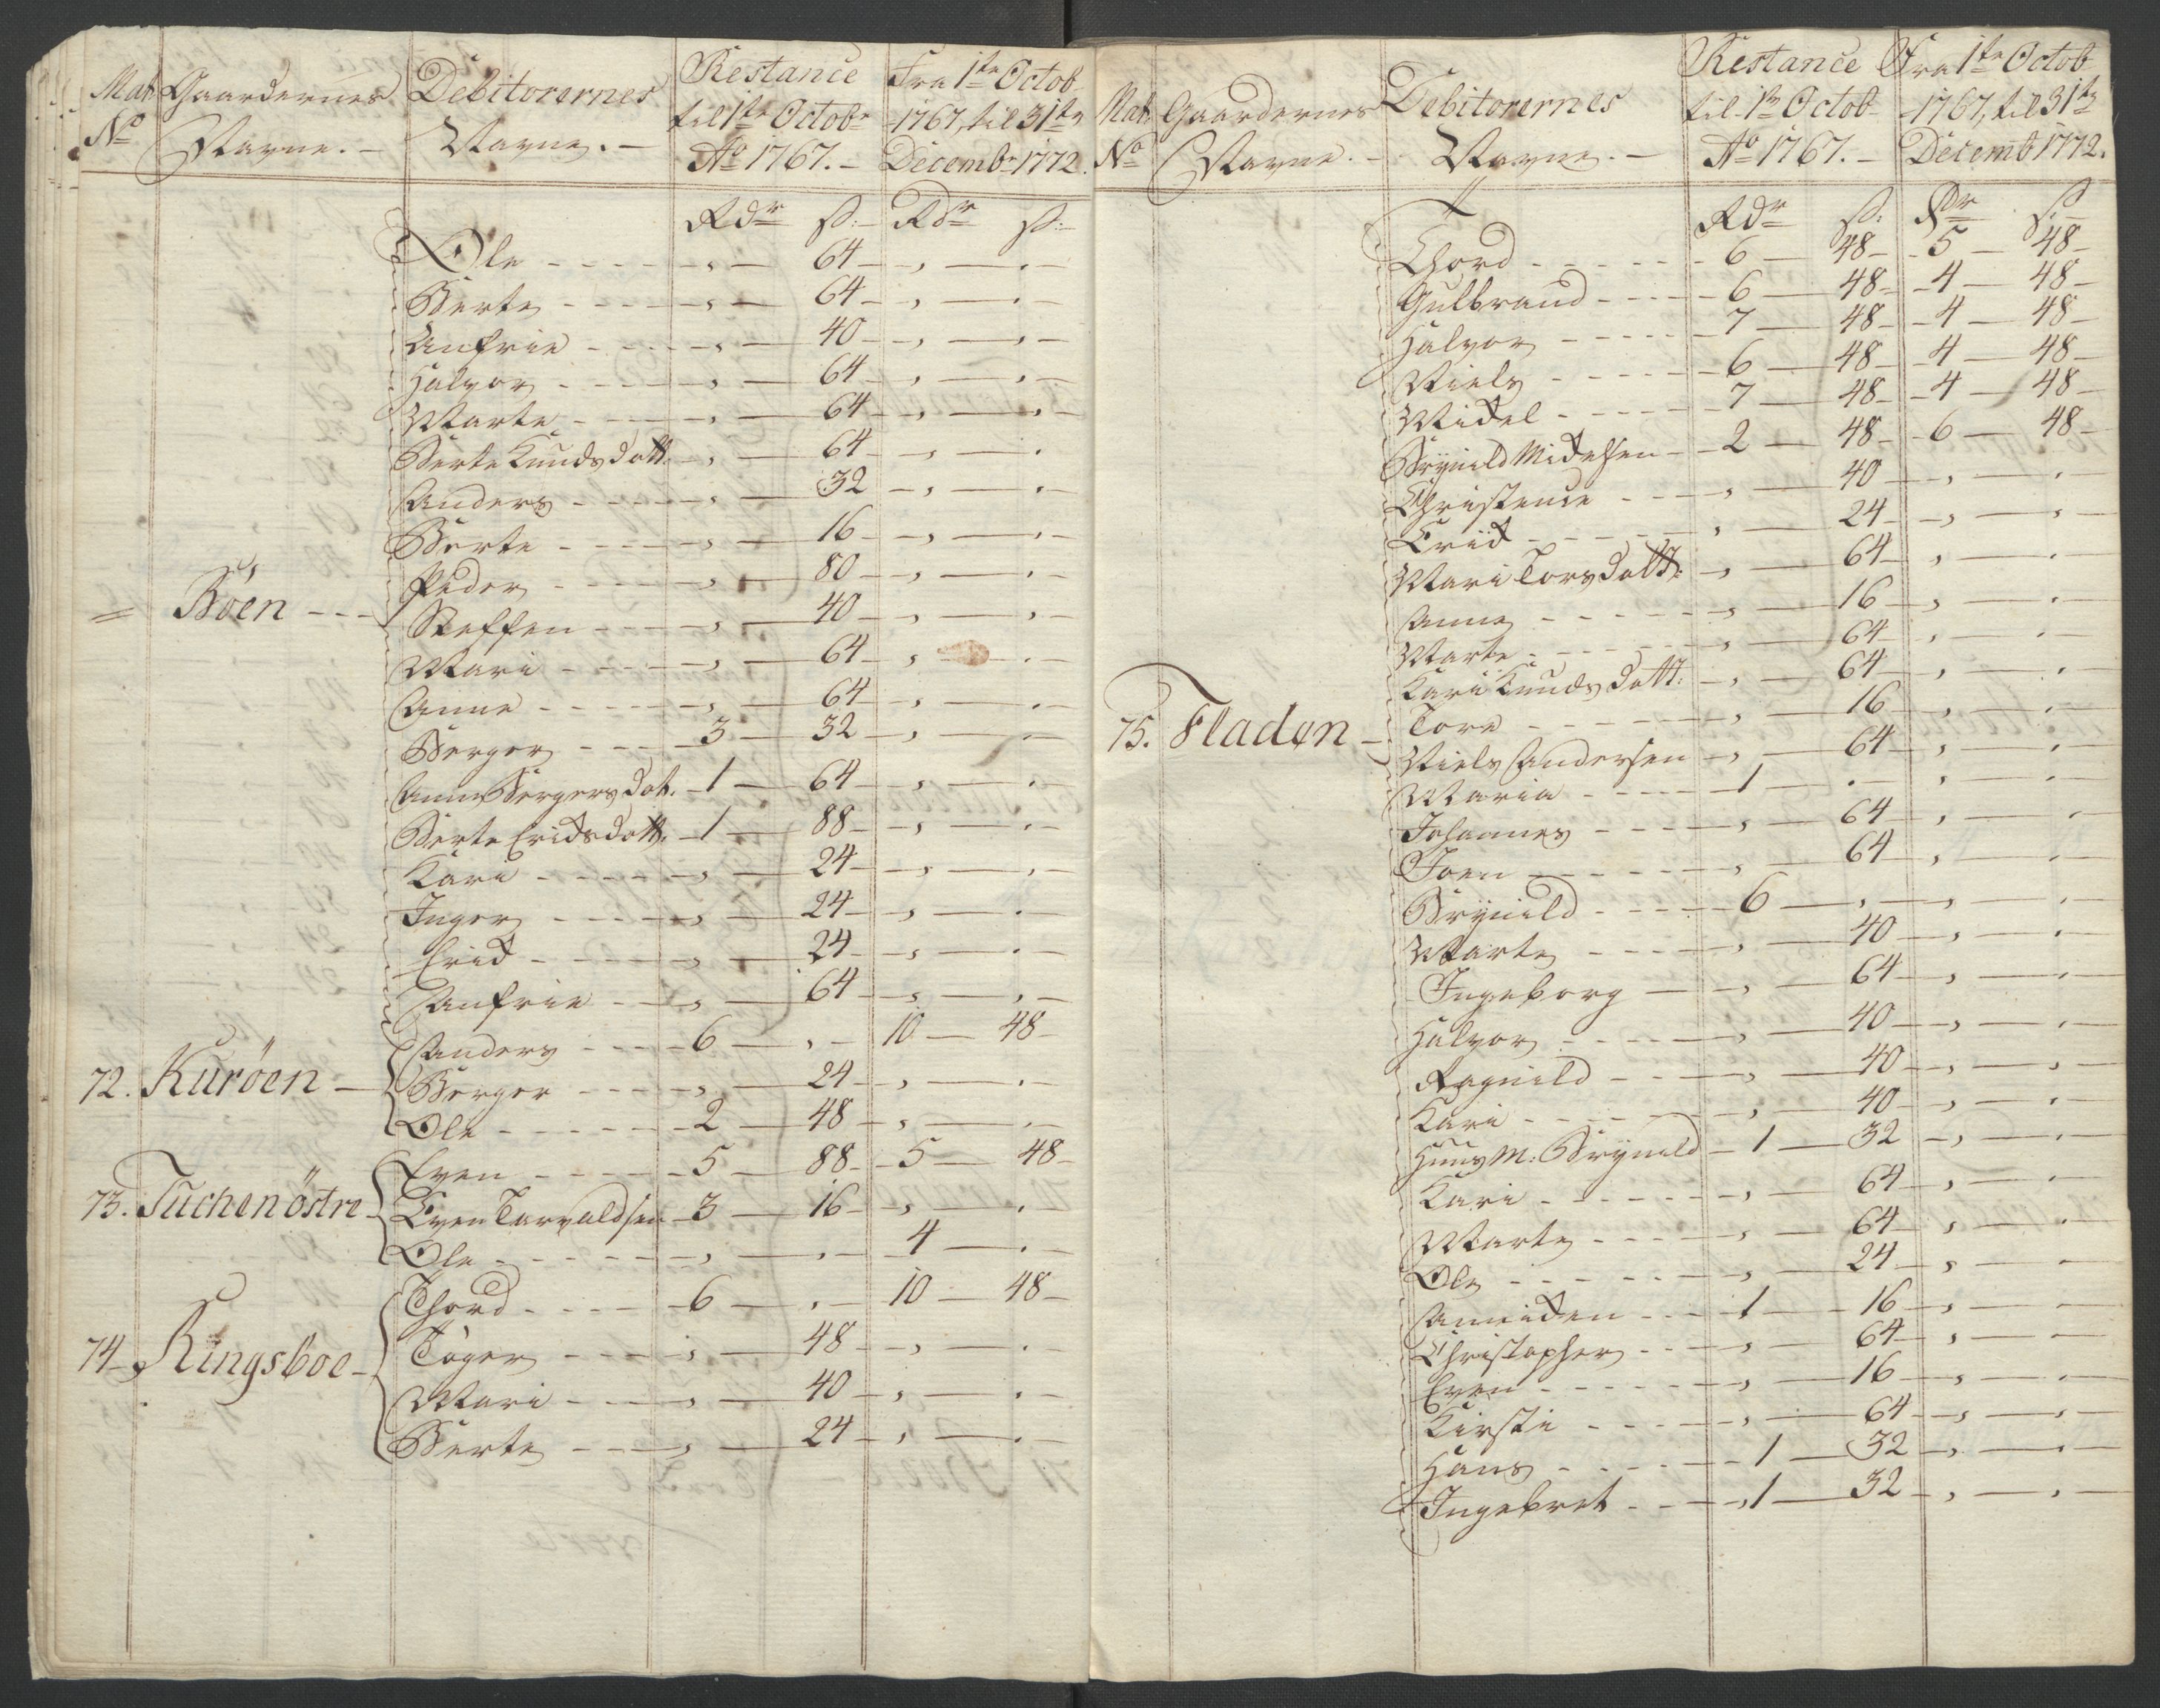 Mat. Gaardernes Debitorernes Restance Fra 1te Octob
No Navne. - Navne. - til 1te Octobr 1767, til 31te
Ao 1767. - Decembr 1772.
Rdr ß: Rdr ß:
Ole - - - - „ — 64 - „ — „ -
Berte - - - - „ — 64 - „ — „ -
Anfrie - - - - „ — 40 - „ — „ -
Halvor - - - - „ — 64 - „ — „ -
Marte - - - - „ — 64 - „ — „ -
Berte Knuds dott. - „ — 64 - „ — „
Anders - - - - „ — 32 - „ — „ -
Berte - - - - „ — 16 - „ — „ -
Peder - - - - „ — 80 - „ — „ -
= Böen - - - Steffen - - - - „ — 40 - „ — „ -
Mari - - - - „ — 64 - „ — „ -
Anne - - - - „ — 64 - „ — „ -
Berger - - - - 3 — 32 - „ — „ -
Anne Bergers dot. - 1 — 64 - „ — „ -
Berte Erichsdott. - 1 — 88 - „ — „ -
Kari - - - - „ — 24 - „ — „ -
Inger - - - - „ — 24 - „ — „ -
Erich - - - - „ — 24 - „ — „ -
Anfrie - - - - „ — 64 - „ — „ -
Anders - - - - 6 — „ - 10 — 48 -
72. Kuröen - Berger - - - - „ — 24 - „ — „ -
Ole - - - - 2 — 48 - „ — „ -
Even - - - - 5 — 88 - 5 — 48 -
73. Tuchen östre - Even Torvaldsen - 3 — 16 - „ — „
Ole - - - - „ — „ - 4 — „ -
Thord - - - - 6 — „ - 10 — 48 -
74. Ringsboe - Töger - - - - „ — 48 - „ — „ -
Mari - - - - „ — 40 - „ — „ -
Berte - - - - „ — 24 - „ — „ -
Mat. Gaardernes Debitorernes Restance Fra 1te Octob
No Navne. - Navne. - til 1te Octob - 1767, til 31te
Ao 1767. - Decemb 1772.
Rdr ß: Rdr ß:
Thord - - - - 6 — 48 - 5 — 48 -
Gulbrand - - - - 6 — 48 - 4 — 48 -
Halvor - - - - 7 — 48 - 4 — 48 -
Niels - - - - 6 — 48 - 4 — 48 -
Michel - - - - 7 — 48 - 4 — 48 -
Brynild Michelsen - 2 — 48 - 6 — 48 -
Christence - - - - „ — 40 - „ — „ -
Erich - - - - „ — 24 - „ — „ -
Mari Torsdott: - „ — 64 - „ — „ -
Anne - - - - „ — 16 - „ — „ -
Marte - - - - „ — 64 - „ — „ -
Kari Knuds dott: - „ — 64 - „ — „ -
75. Fladen - Tore - - - - „ — 16 - „ — „ -
Niels Andersen - „ — 64 - „ — „ -
Maria - - - - 1 — „ - „ — „ -
Johannes - - - - „ — 64 - „ — „ -
Joen - - - - „ — 64 - „ — „ -
Brynild - - - - 6 — „ - „ — „ -
Marte - - - - „ — 40 - „ — „ -
Ingeborg - „ — 64 - „ — „ -
Halvor - - - - „ — 40 - „ — „ -
Ragnild - - - - „ — 40 - „ — „ -
Kari - - - - „ — 40 - „ — „ -
Huus M: Brynild - 1 — 32 - „ — „ -
Kari - - - - „ — 64 - „ — „ -
Marte - - - - „ — 64 - „ — „ -
Ole - - - - „ — 24 - „ — „ -
Annichen - - - - 1 — 16 - „ — „ -
Christopher - - - - „ — 64 - „ — „ -
Even - - - - „ — 16 - „ — „ -
Kirsti - - - - „ — 64 - „ — „ -
Hans - - - - 1 — 32 - „ — „ -
Ingebret - - - - 1 — 32 - „ — „ -